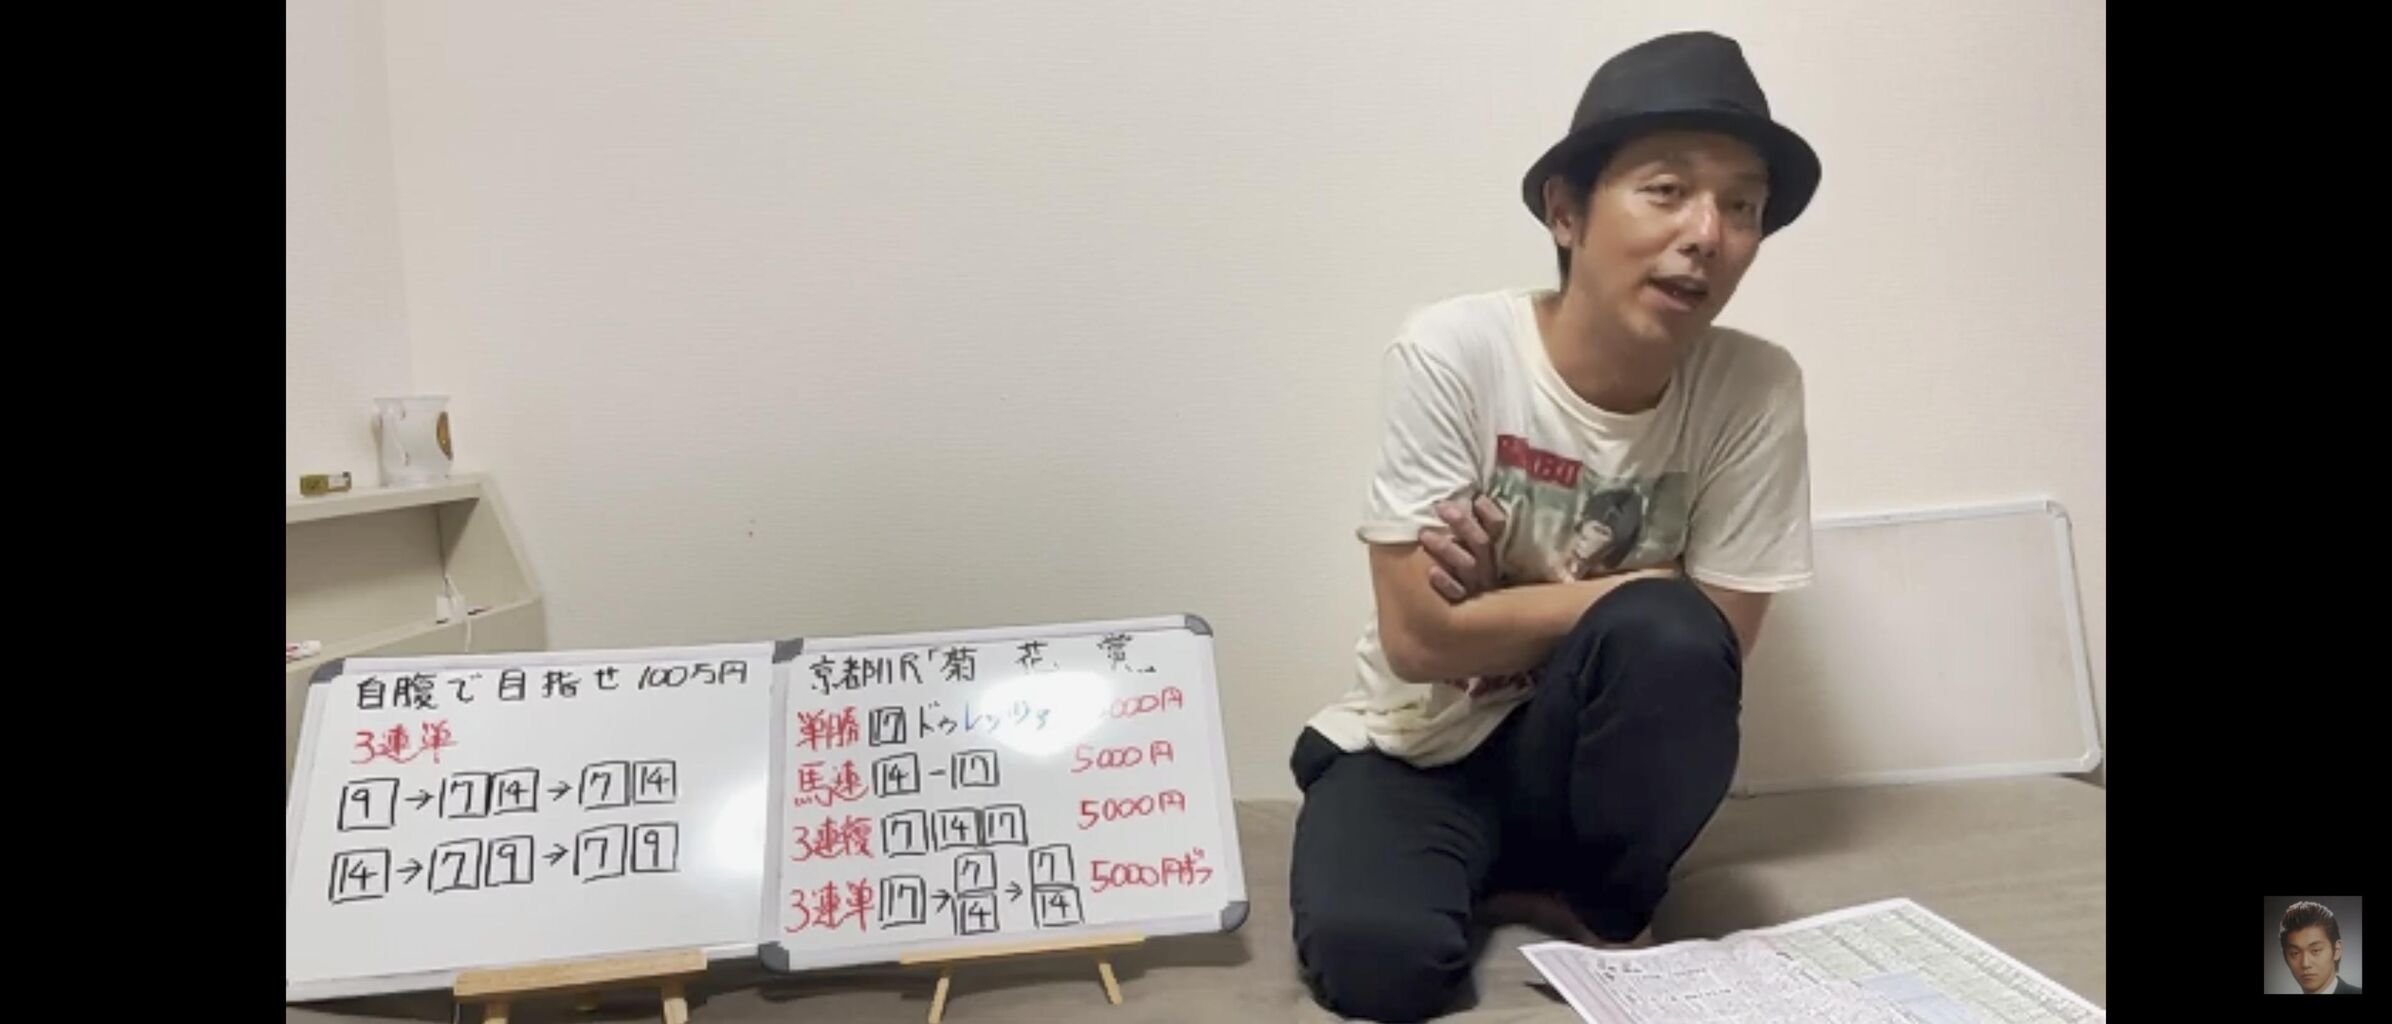 自腹で目指せ100万円
3連単
9→7 14→7 14
14→7 9→7 9
京都11R「菊花賞」
単勝 17 ドゥレッツァ 000円
馬連 14-17 5000円
3連複 7 14 17 5000円
3連単 17→7 14→7 14 5000円ボックス